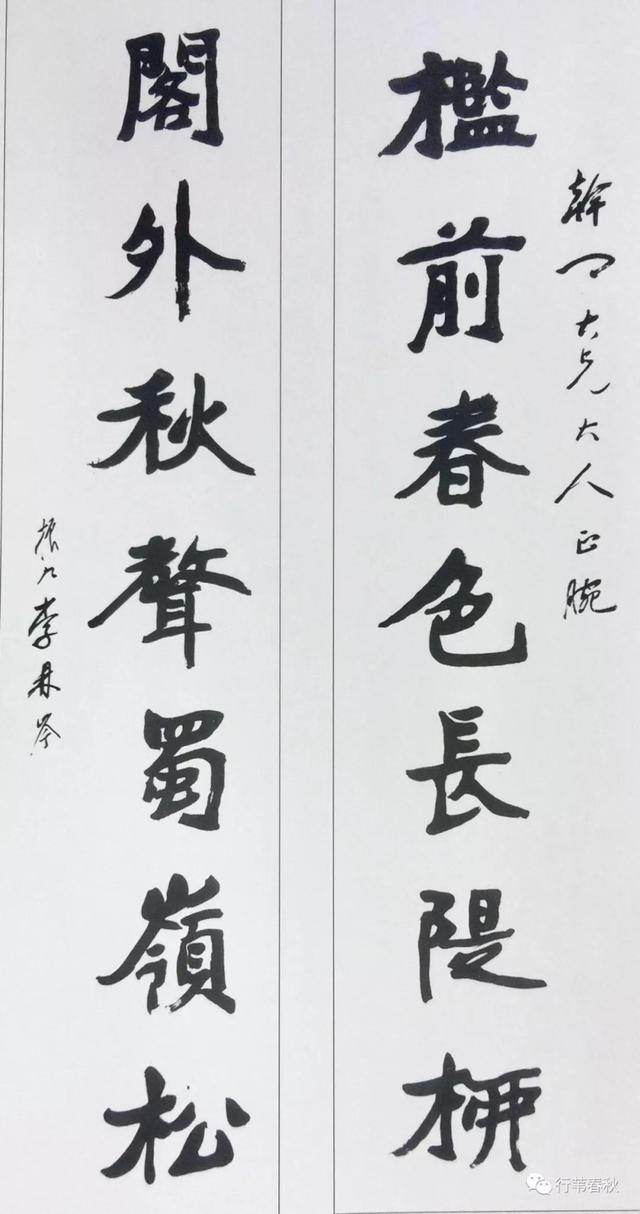 幹大兄大人正腕
檻前春色長隄桺
閣外秋聲蜀嶺松
振九李
行苇春秋